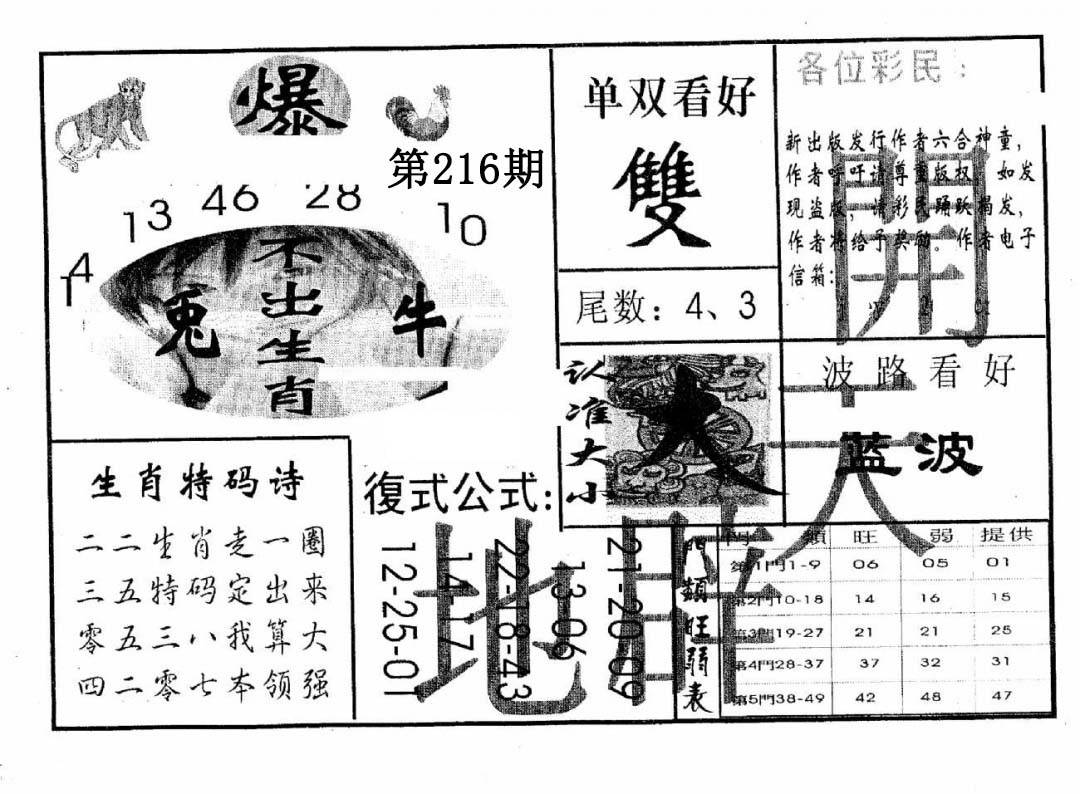 爆
第216期
14
13
46
28
10
不出生肖
兎
牛
单双看好
雙
尾数：4、3
各位彩民：
新出版发行作者六合神童，
作者呼吁请尊重版权，如发
现盗版，请彩民踊跃揭发，
作者将给予奖励。作者电子
信箱：
開
认准大小
大
波路看好
蓝波
天
生肖特码诗
二二生肖走一圈
三五特码定出来
零五三八我算大
四二零七本领强
復式公式：
12-25-01
14-17
22-18-43
13-06
21-20-09
地
門類旺弱表
門 類 旺 弱 提供
第1門1-9 06 05 01
第2門10-18 14 16 15
第3門19-27 21 21 25
第4門28-37 37 32 31
第5門38-49 42 48 47